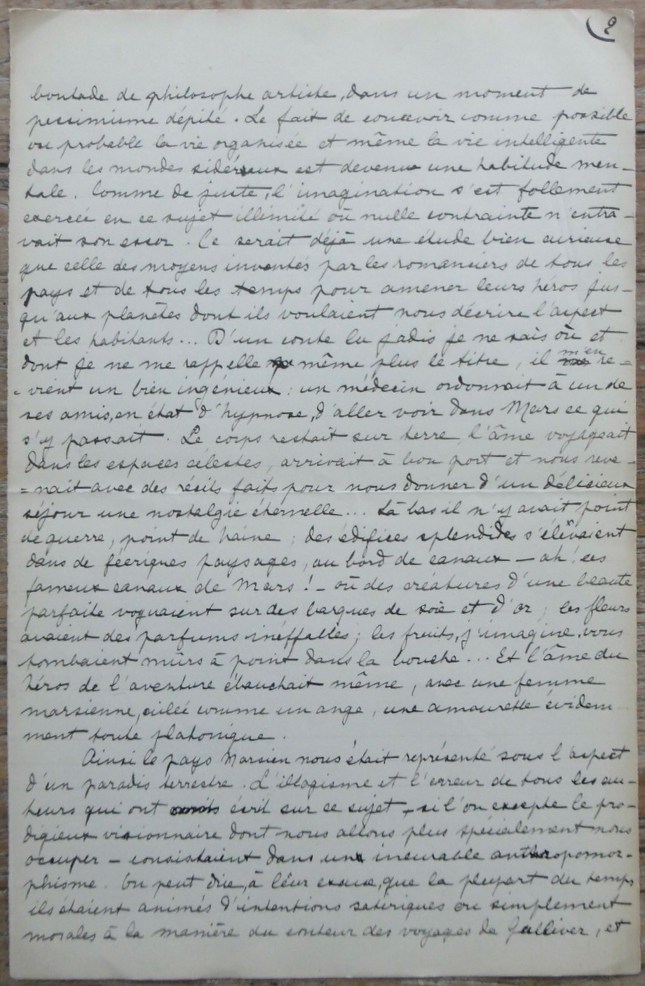 2
boutade de philosophe artiste, dans un moment de
pessimisme dépité. Le fait de concevoir comme possible
ou probable la vie organisée et même la vie intelligente
dans les mondes sidéraux est devenu une habitude men-
tale. Comme de juste, l'imagination s'est follement
exercée en ce sujet illimité où nulle contrainte n'entra-
vait son essor. Ce serait déjà une étude bien curieuse
que celle des moyens inventés par les romanciers de tous les
pays et de tous les temps pour amener leurs héros jus-
qu'aux planètes dont ils voulaient nous décrire l'aspect
et les habitants... D'un conte lu jadis je ne sais où et
dont je ne me rappelle même plus le titre, il m'en re-
-vient un bien ingénieux : un médecin ordonnait à un de
ses amis, en état d'hypnose, d'aller voir dans Mars ce qui
s'y passait. Le corps restait sur terre, l'âme voyageait
dans les espaces célestes, arrivait à bon port et nous reve-
=nait avec des récits faits pour nous donner d'un délicieux
séjour une nostalgie éternelle... Là bas il n'y avait point
de guerre, point de haine ; des édifices splendides s'élevaient
dans de féeriques paysages, au bord de canaux — ah ! ces
fameux canaux de Mars ! — où des créatures d'une beauté
parfaite voguaient sur des barques de soie et d'or ; les fleurs
avaient des parfums ineffables ; les fruits, j'imagine, vous
tombaient mûrs à point dans la bouche... Et l'âme du
héros de l'aventure ébauchait même, avec une femme
marsienne, ailée comme un ange, une amourette évidem-
ment toute platonique.
Ainsi le pays Marsien nous était représenté sous l'aspect
d'un paradis terrestre. L'illogisme et l'erreur de tous les au-
teurs qui ont écrit sur ce sujet — si l'on excepte le pro-
digieux visionnaire dont nous allons plus spécialement nous
occuper — consistaient dans un incurable anthropomor-
phisme. On peut dire, à leur excuse, que la plupart du temps
ils étaient animés d'intentions satiriques ou simplement
morales à la manière du conteur des voyages de Gulliver, et